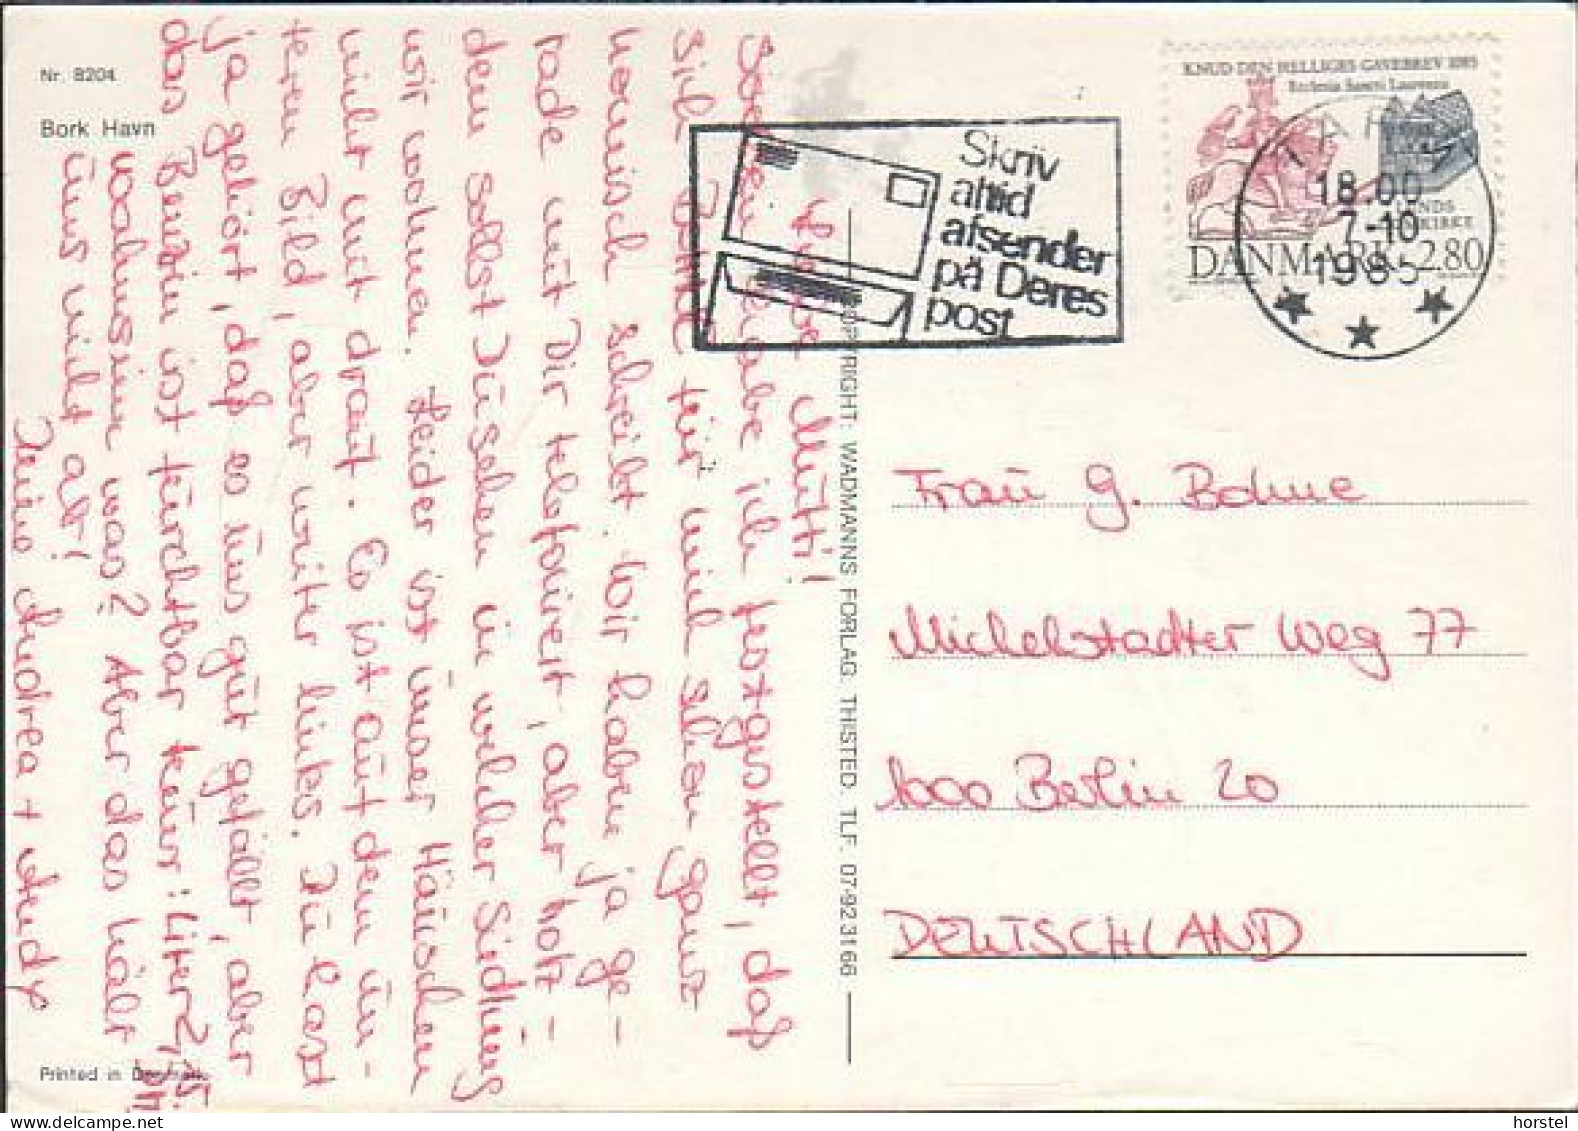 Nr. 8204
Bork Havn
Liebe Mutti!
Soeben habe ich festgestellt, daß
sich Borke für mich schon ganz
komisch schreibt. Wir haben ja ge-
rade mit Dir telefoniert, aber trotz-
dem sollst Du sehen in welcher Siedlung
wir wohnen. Leider ist unser Häuschen
nicht mit drauf. Es ist auf dem un-
teren Bild, aber weiter links. Du hast
ja gehört, daß es uns gut gefällt, aber
das Benzin ist furchtbar teuer: Liter 2,15 DM
wahnsinn was? Aber das hält
uns nicht ab!
Deine Andrea + Andy
Printed in Denmark
COPYRIGHT: WADMANNS FORLAG. THISTED. TLF. 07-923166
Skriv
altid
afsender
på Deres
post
KNUD DEN HELLIGES GAVEBREV 1085
Ecclesia Sancti Laurentii
LUNDS
DOMKIRKE
DANMARK 2.80
TARM
18.00
7.-10
1985
Frau G. Bohne
Michelstadter Weg 77
1000 Berlin 20
DEUTSCHLAND
horstel